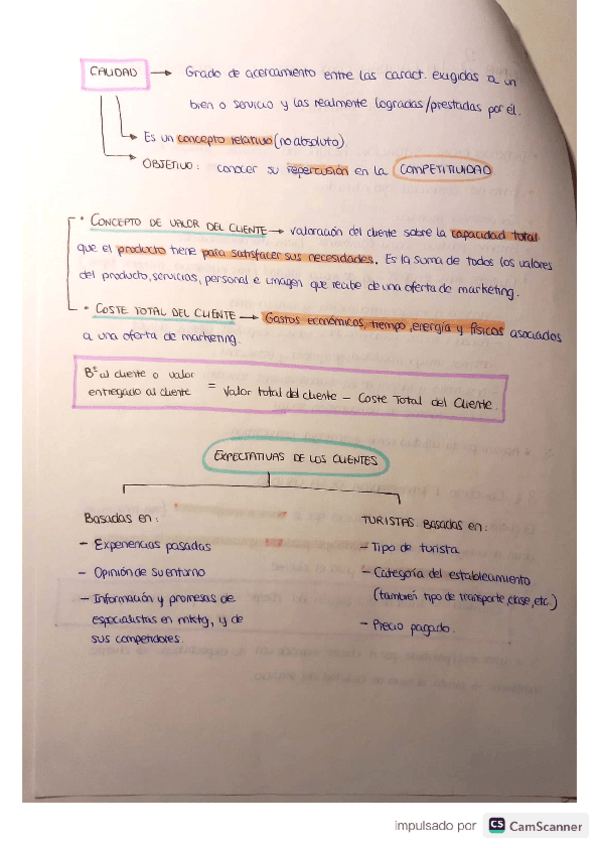 CALIDAD → Grado de acercamiento entre las caract. exigidas a un
bien o servicio y las realmente logradas/prestadas por él.
→ Es un concepto relativo (no absoluto)
→ OBJETIVO: conocer su repercusión en la COMPETITIVIDAD
• CONCEPTO DE VALOR DEL CLIENTE → valoración del cliente sobre la capacidad total
que el producto tiene para satisfacer sus necesidades. Es la suma de todos los valores
del producto, servicios, personal e imagen que recibe de una oferta de marketing.
• COSTE TOTAL DEL CLIENTE → Gastos económicos, tiempo, energía y físicos asociados
a una oferta de marketing.
Bº al cliente o valor
entregado al cliente = Valor total del cliente - Coste Total del Cliente.
EXPECTATIVAS DE LOS CLIENTES
Basadas en:
- Experiencias pasadas
- Opinión de su entorno
- Información y promesas de
especialistas en mktg, y de
sus competidores.
TURISTAS Basadas en:
- Tipo de turista
- Categoría del establecimiento
(también tipo de transporte, clase, etc.)
- Precio pagado.
impulsado por CS CamScanner